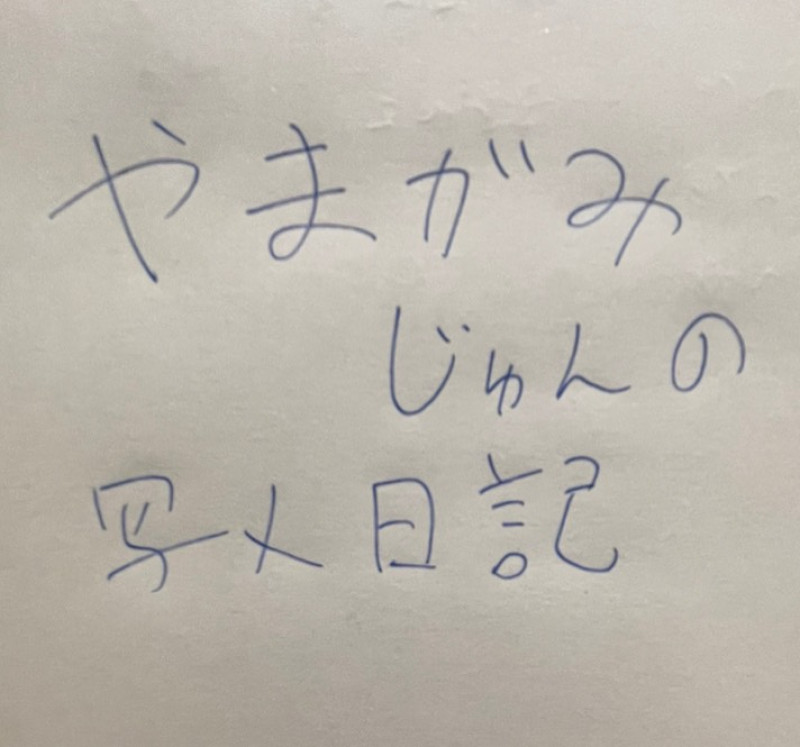 やまがみ
じゅんの
写メ日記